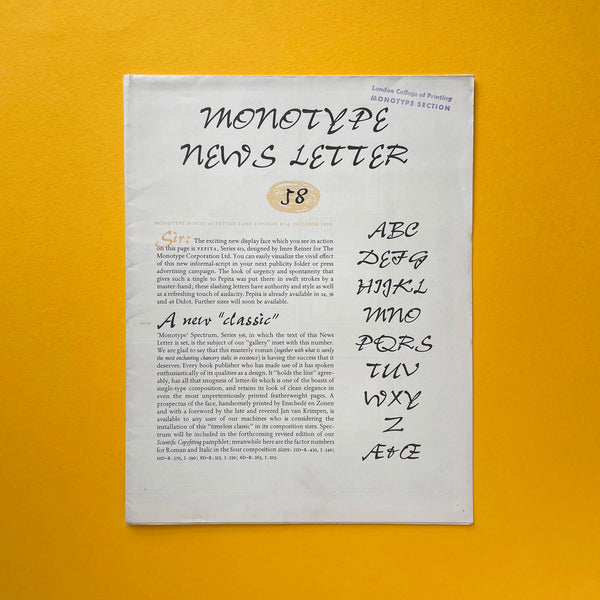 London College of Printing
MONOTYPE SECTION
MONOTYPE
NEWS LETTER
58
MONOTYPE HOUSE 43 FETTER LANE LONDON EC4 OCTOBER 1959
Sir: The exciting new display face which you see in action
on this page is PEPITA, Series 613, designed by Imre Reiner for The
Monotype Corporation Ltd. You can easily visualize the vivid effect
of this new informal-script in your next publicity folder or press
advertising campaign. The look of urgency and spontaneity that
gives such a tingle to Pepita was put there in swift strokes by a
master-hand; these slashing letters have authority and style as well
as a refreshing touch of audacity. Pepita is already available in 24, 36
and 48 Didot. Further sizes will soon be available.
A new "classic"
'Monotype' Spectrum, Series 396, in which the text of this News
Letter is set, is the subject of our "gallery" inset with this number.
We are glad to say that this masterly roman (together with what is surely
the most enchanting chancery italic in existence) is having the success that it
deserves. Every book publisher who has made use of it has spoken
enthusiastically of its qualities as a design. It "holds the line" agree-
ably, has all that snugness of letter-fit which is one of the boasts of
single-type composition, and retains its look of clean elegance in
even the most unpretentiously printed featherweight pages. A
prospectus of the face, handsomely printed by Enschedé en Zonen
and with a foreword by the late and revered Jan van Krimpen, is
available to any user of our machines who is considering the
installation of this "timeless classic" in its composition sizes. Spec-
trum will be included in the forthcoming revised edition of our
Scientific Copyfitting pamphlet; meanwhile here are the factor numbers
for Roman and Italic in the four composition sizes:
ABC
DEFG
HIJKL
MNO
PQRS
TUV
WXY
Z
Æ&Œ